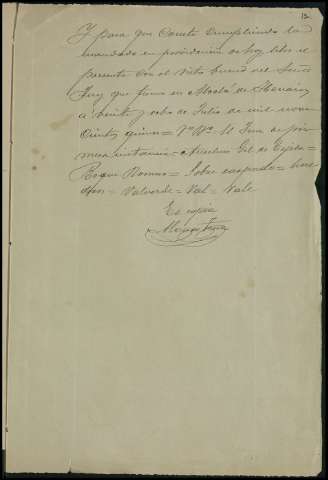 12
Y para que conste cumpliendo lo
mandado en providencia de hoy libro el
presente con el visto bueno del Señor
Juez que firmo en Alcalá de Henares
á veinte y ocho de Julio de mil nove
cientos quince = Vº Bº El Juez de pri
mera instancia = Gil de Tejada =
Roque Romero = Sobre raspado =
= Valverde = Val = Vale
Es copia